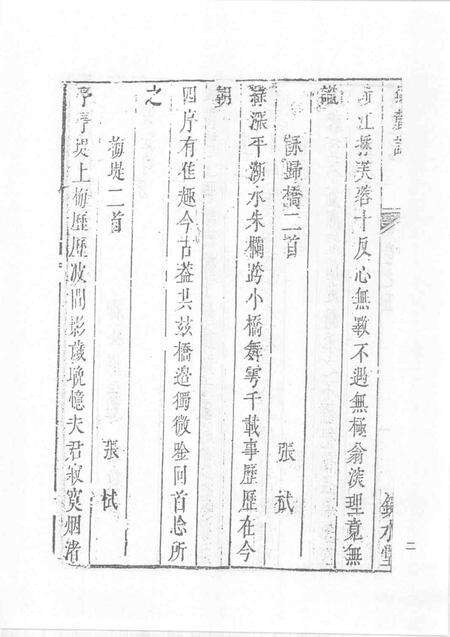 涉江採芙蓉十反心無斁不遇無極翁深理竟無
識
詠歸橋二首
張栻
綠漲平湖水朱欄跨小橋舞雩千載事歷歷在今
朝
四序有佳趣今古蓋共玆橋邉獨微吟回首忩所
之
梅堤二首
張栻
亭亭堤上梅歷歷波間影歲晩憶夫君寂寞烟渚
二